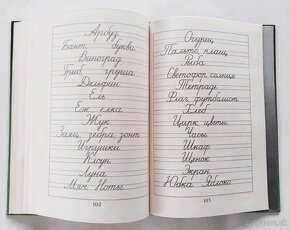 Арбуз
Бант, буква
Виноград
Гриб, груша
Дельфин
Ель
Еж, елка
Жук
Заяц, зебра, зонт
Игрушки
Клоун
Луна
Мяч Ноты.
102
Огурец
Пальто, плащ
Рыба
Светофор, солнце
Тетрадь
Флаг, футболист
Хлеб
Цирк, цветы.
Часы
Шкаф
Щенок
Экран
Юбка Яблоко
103